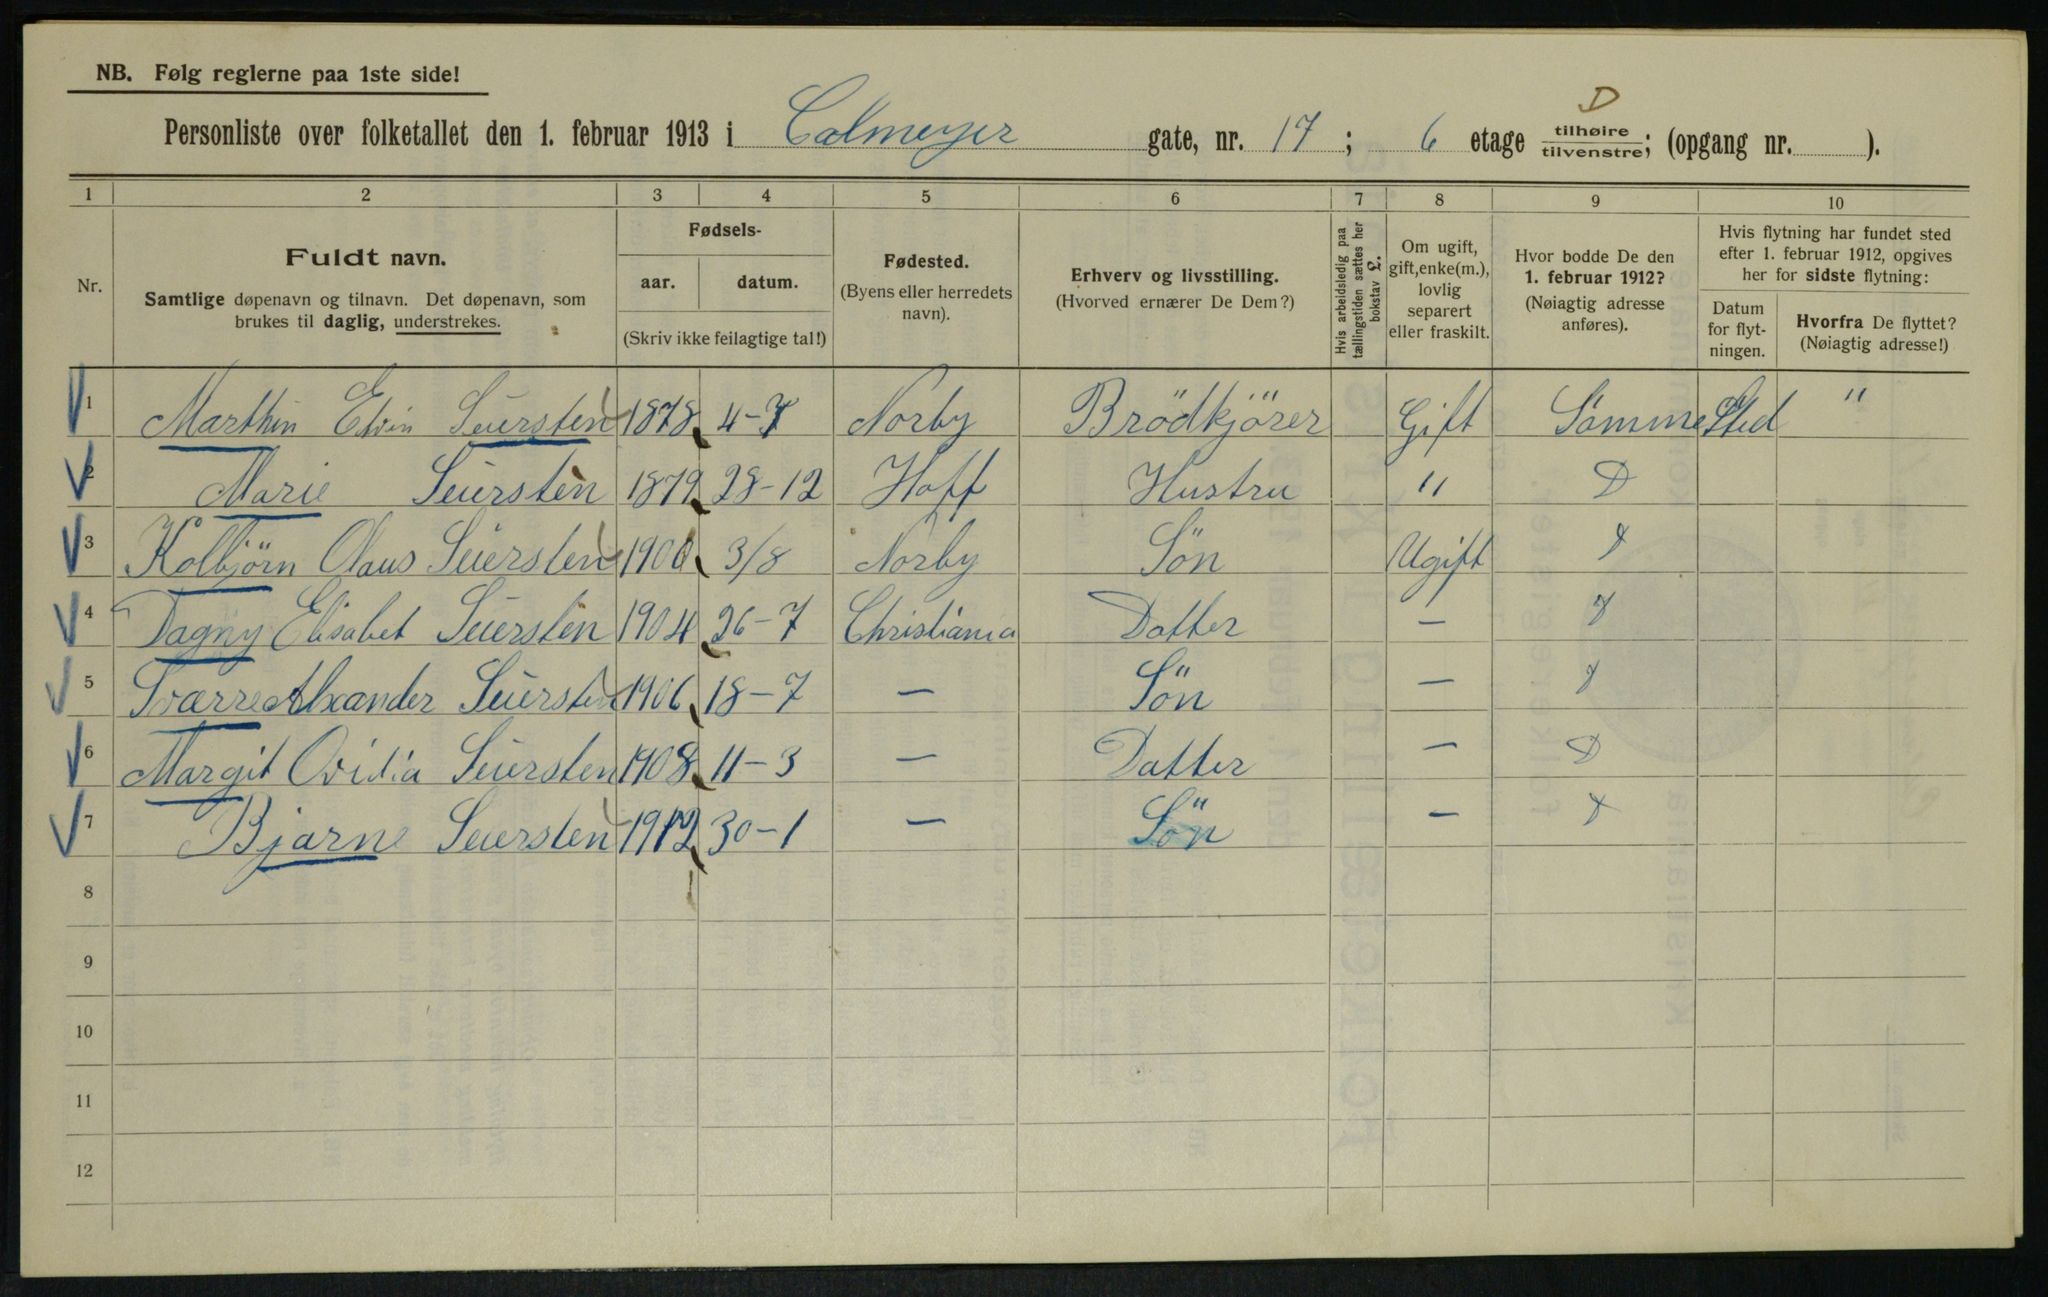 NB. Følg reglerne paa 1ste side!
D
Personliste over folketallet den 1. februar 1913 i Calmeyer gate, nr. 17; 6 etage tilhøire tilvenstre; (opgang nr. ).
1 2 3 4 5 6 7 8 9 10
Nr.
Fuldt navn.
Samtlige døpenavn og tilnavn. Det døpenavn, som
brukes til daglig, understrekes.
Fødsels-
aar. datum.
(Skriv ikke feilagtige tal!)
Fødested.
(Byens eller herredets
navn).
Erhverv og livsstilling.
(Hvorved ernærer De Dem?)
Hvis arbeidsledig paa
tællingstiden sættes her
bokstav L.
Om ugift,
gift, enke(m.),
lovlig
separert
eller fraskilt.
Hvor bodde De den
1. februar 1912?
(Nøiagtig adresse
anføres).
Hvis flytning har fundet sted
efter 1. februar 1912, opgives
her for sidste flytning:
Datum
for flyt-
ningen.
Hvorfra De flyttet?
(Nøiagtig adresse!)
1 Marthin Edvin Seiersten 1878 4-7 Norby Brödkjörer Gift Samme Sted "
2 Marie Seiersten 1879 28-12 Hoff Hustru " D
3 Kolbjörn Olaus Seiersten 1900 3/8 Norby Sön Ugift
4 Dagny Elisabet Seiersten 1904 26-7 Christiania Datter —
5 Sværre Alxander Seiersten 1906 18-7 — Sön —
6 Margit Ovidia Seiersten 1908 11-3 — Datter — D
7 Bjarne Seiersten 1912 30-1 — Sön —
8
9
10
11
12